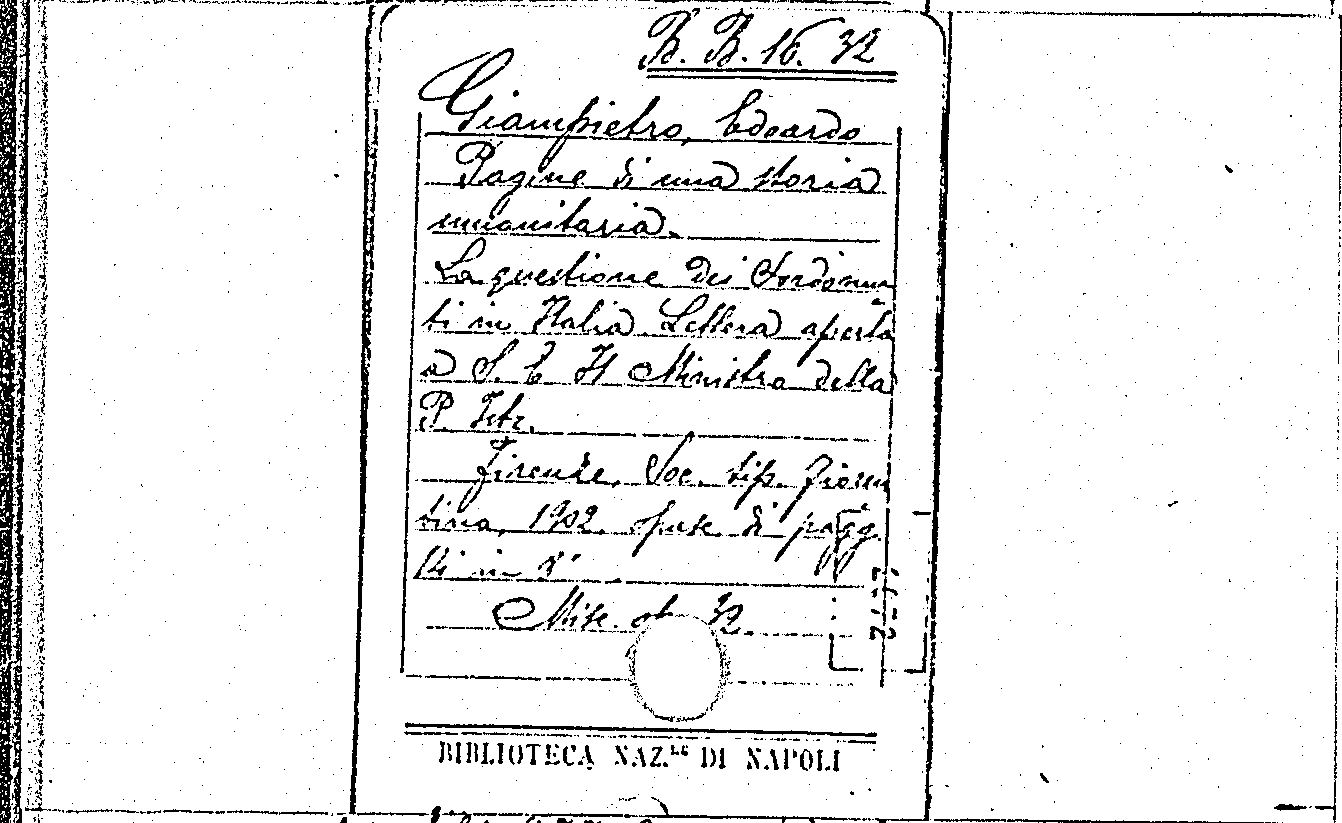 B. B. 16. 32
Giampietro, Edoardo
Pagine di una storia
umanitaria.
La questione dei Sordomu-
ti in Italia Lettera aperta
a S. E. Il Ministro della
P. Istr.
Firenze, Soc. tip. fioren
tina, 1902. opusc di pagg.
14 in 8°
Misc. 32.
BIBLIOTECA NAZ.LE DI NAPOLI